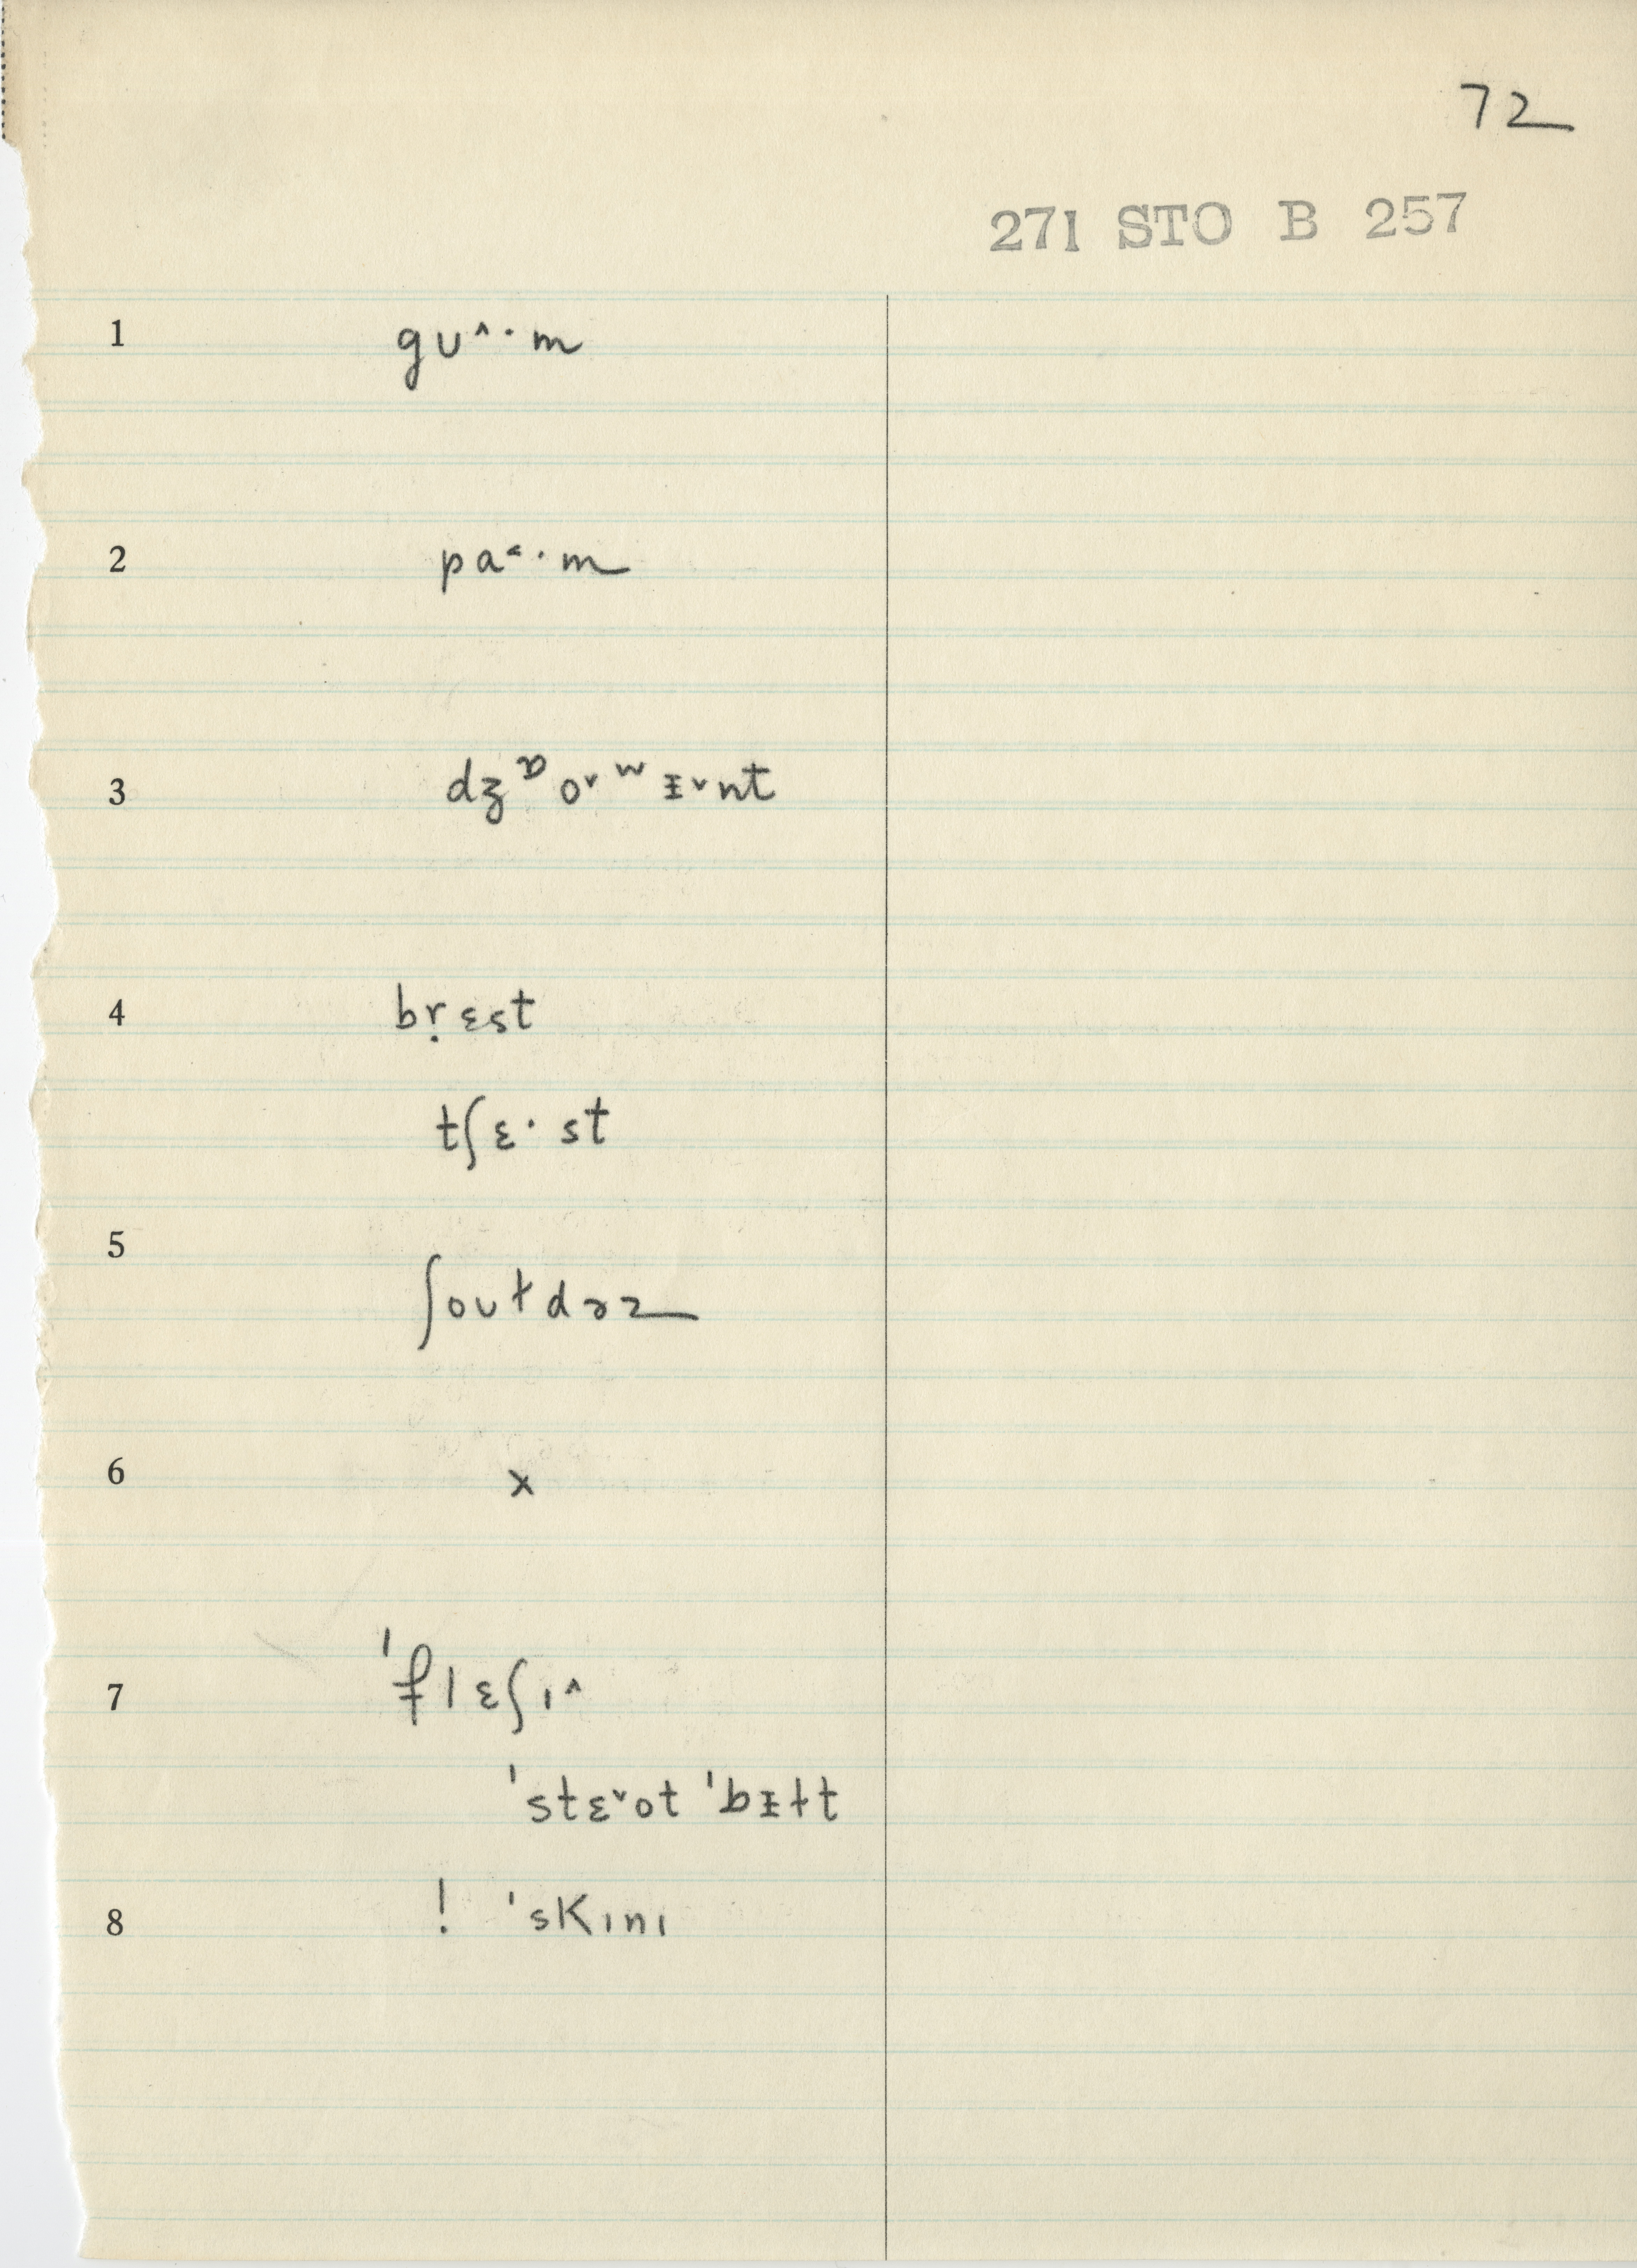 72
271 STO B 257
1 gʊ^·m
2 pa˂·m
3 dʒᶛo˅ʷᵻ˅nt
4 bṛɛst
tʃɛ·st
5 ʃoʊɫdɚz
6 x
7 ˈflɛʃɪ^
ˈstɛ˅ot ˈbᵻɫt
8 ! ˈskɪnɪ